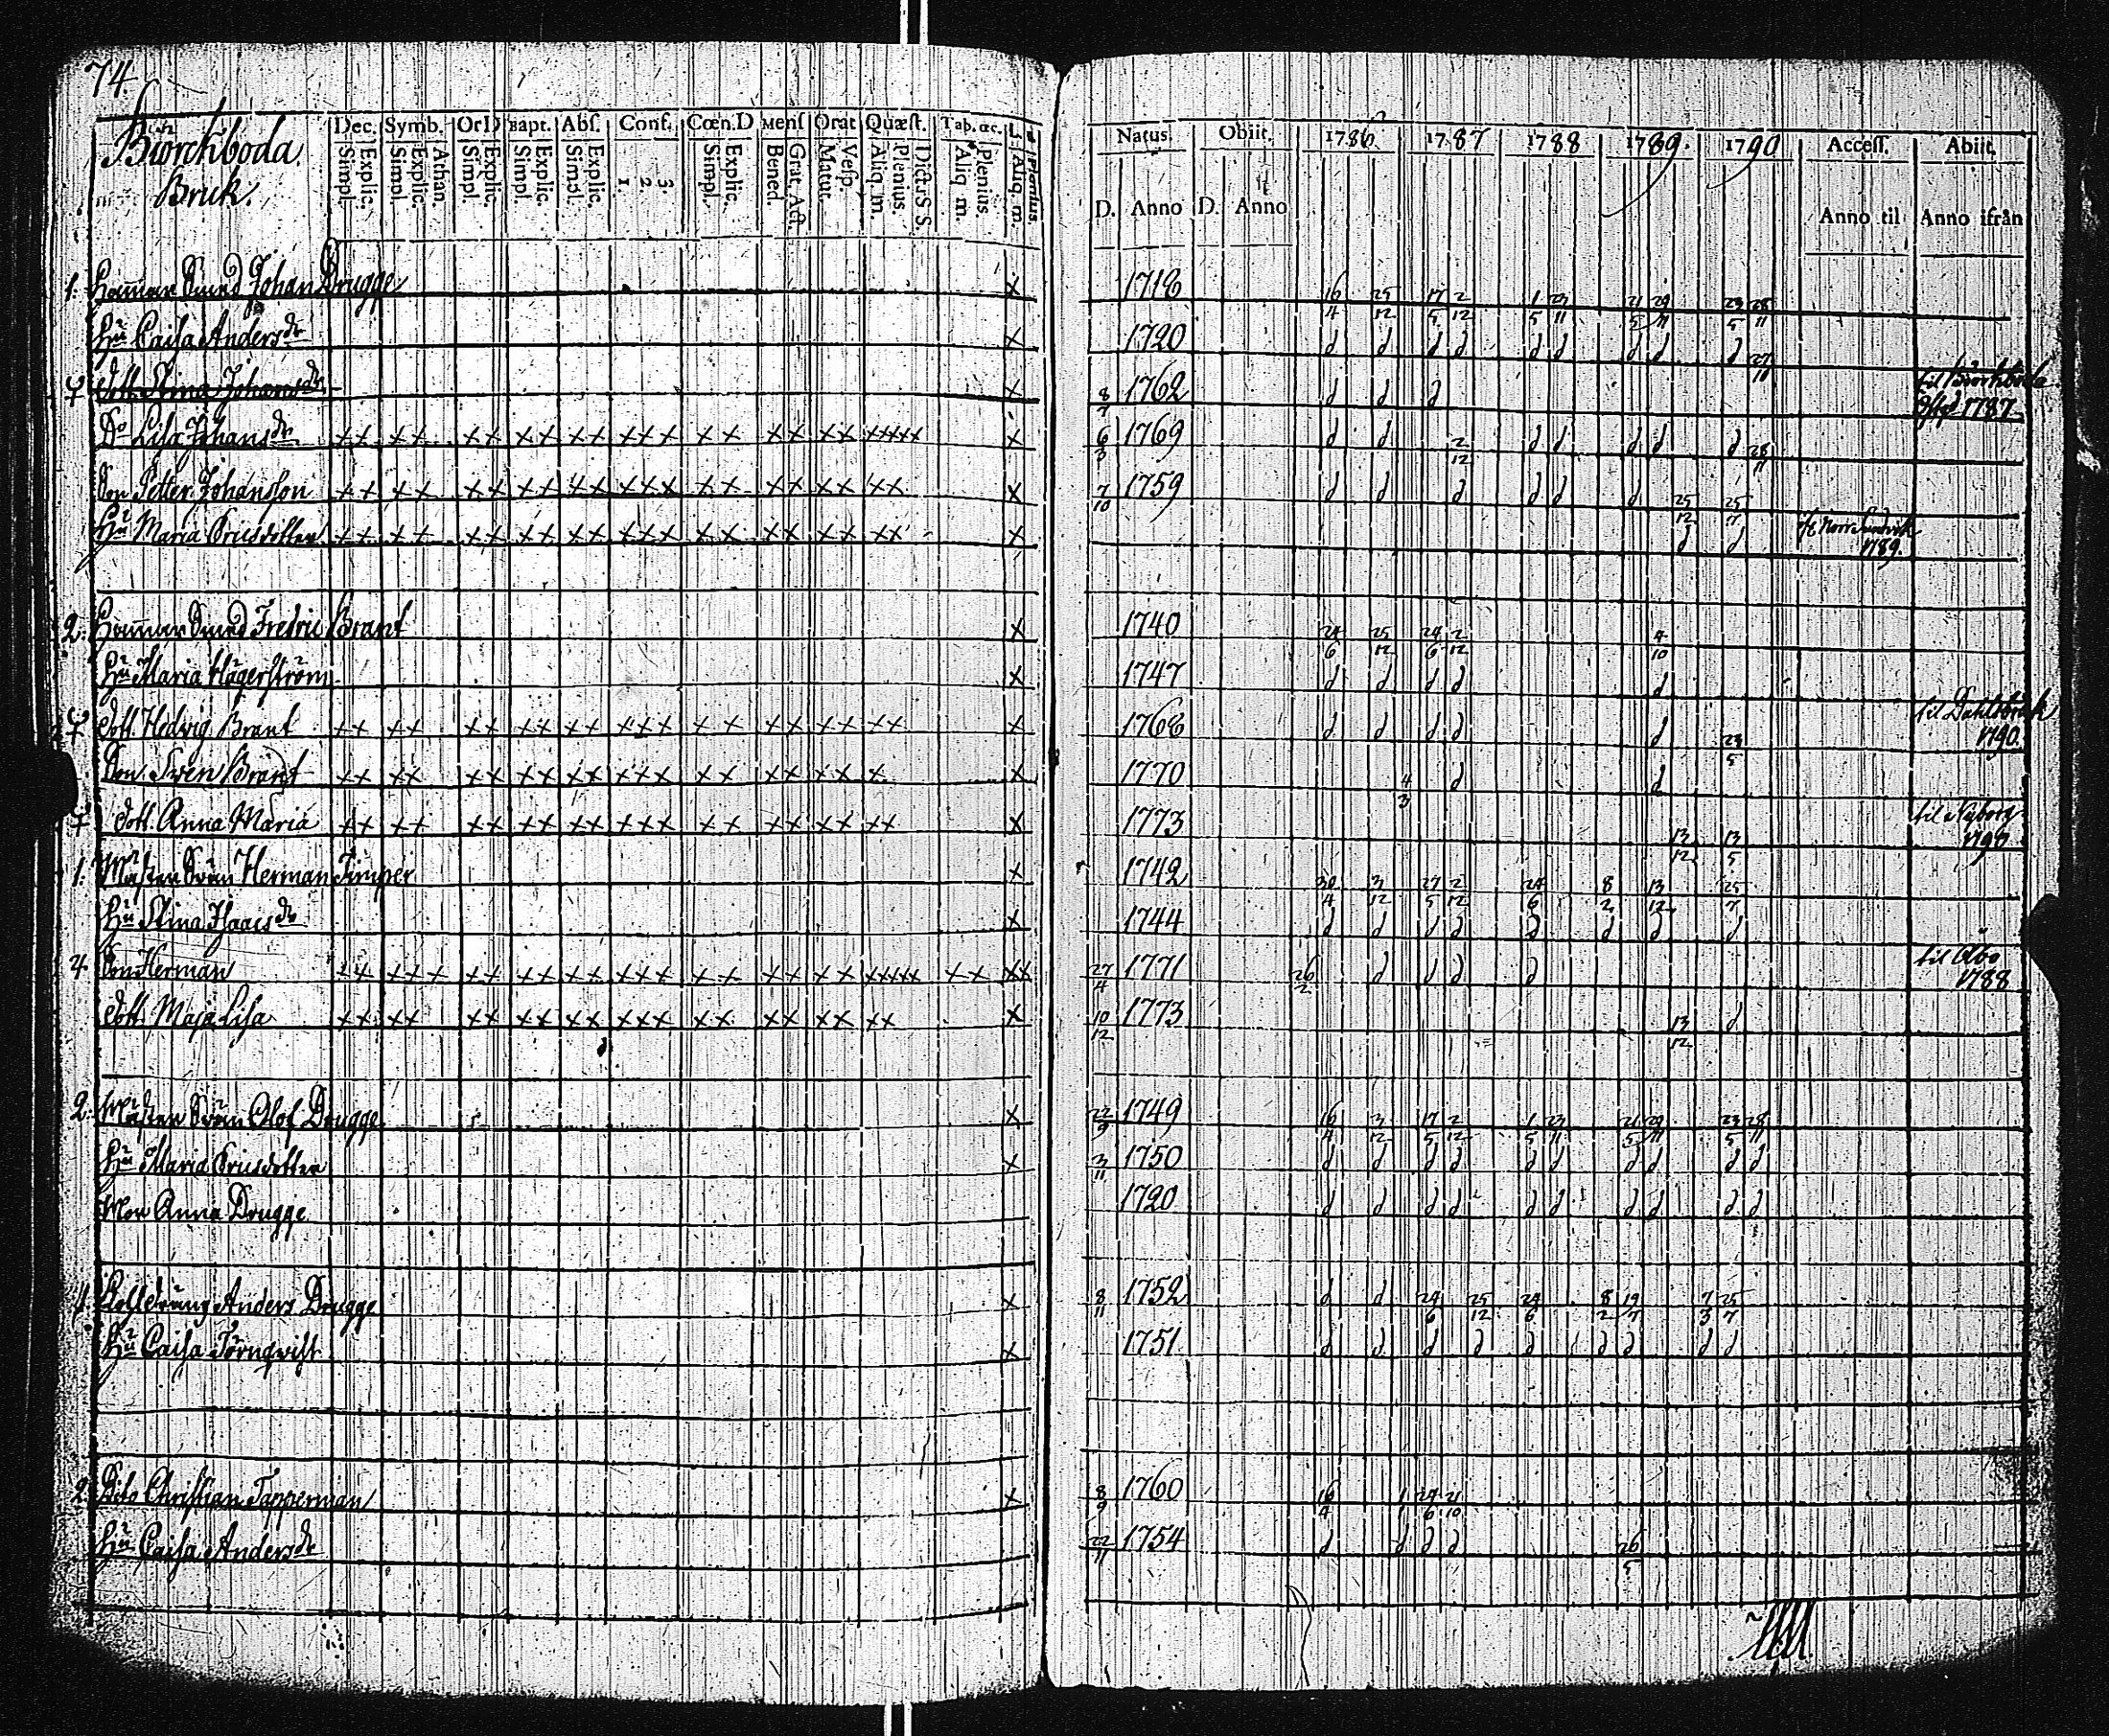 74.
Biörckboda
Bruk.
Dec. Symb. Or D Bapt. Abs. Conf. Cœn. D Mens Orat Quæst. Tab. œc. L. s.
Simpl. Explic. Simpl. Explic. Athan. Simpl. Explic. Simpl. Explic. Simpl. Explic. 1. 2 3. Simpl. Explic. Bened. Grat. Act. Matut. Vesp. Aliq. m. Plenius. Dict. S S. Aliq m. Plenius. Aliq m. Plenius.
Natus. Obiit. 1786 1787 1788 1789. 1790 Access. Abiit.
D. Anno D. Anno Anno til Anno ifrån
1. Hammar Smed Johan Drugge x 1718 16/4 25/12 17/5 2/12 1/5 23/11 21/5 29/11 23/5 28/11
Hu Caisa Andersdr x 1720 d d d d d d d d d 27/11
Dott. Stina Johansdr x 8/7 1762 d d d til Biörckboda 1787
Do Lisa Johansdr xx xx xx xx xx xxx xx xx xx xxxxx x 6/3 1769 d d 2/12 d d d d d 28/11
Son Petter Johansson xx xx xx xx xx xxx xx xx xx xx x 7/10 1759 d d d d d d 25/12 25/7
Hu Maria xx xx xx xx xx xxx xx xx xx xx x d d 1789.
2. Hammar Smed Fredric Brant x 1740 24/6 25/12 24/6 2/12 4/10
Hu Maria Hägerström x 1747 d d d d d
Dott. Hedvig Brant xx xx xx xx xx xxx xx xx xx xx x 1768 d d d d d 23/5 til Dahlsbruk 1790.
Son Sven Brant xx xx xx xx xx xxx xx xx xx x x 1770 4/3 d d
Dott. Anna Maria xx xx xx xx xx xxx xx xx xx xx x 1773 13/12 13/5 til Nyborg 1790
1. Herman Timper x 1742 30/4 3/12 27/5 2/12 24/6 8/2 13/12 25/7
Hu Stina Isaacsdr x 1744 d d d d d d d d
4. Son Herman xx xxx xx xx xx xxx xx xx xx xxxxx xx xx 27/4 1771 26/2 d d d d til Åbo 1788
Dott. Maja Lisa xx xx xx xx xx xxx xx xx xx xx x 10/12 1773 13/12 d
2. Olof Drugge x 22/9 1749 16/4 3/12 17/5 2/12 1/5 23/11 21/5 29/11 23/5 28/11
Hu Maria x 3/11 1750 d d d d d d d d d d
Mor Anna Drugge 1720 d d d d d d d d d d
1. Anders Drugge x 8/11 1752 d d 24/6 25/12 24/6 8/2 19/7 7/3 25/7
Hu Caisa Törnqvist x 1751. d d d d d d d d d
2. Dito Christian Tapperman x 8/9 1760 16/4 1/1 24/6 21/10
Hu Caisa Andersdr 22/11 1754 d d d d 26/5